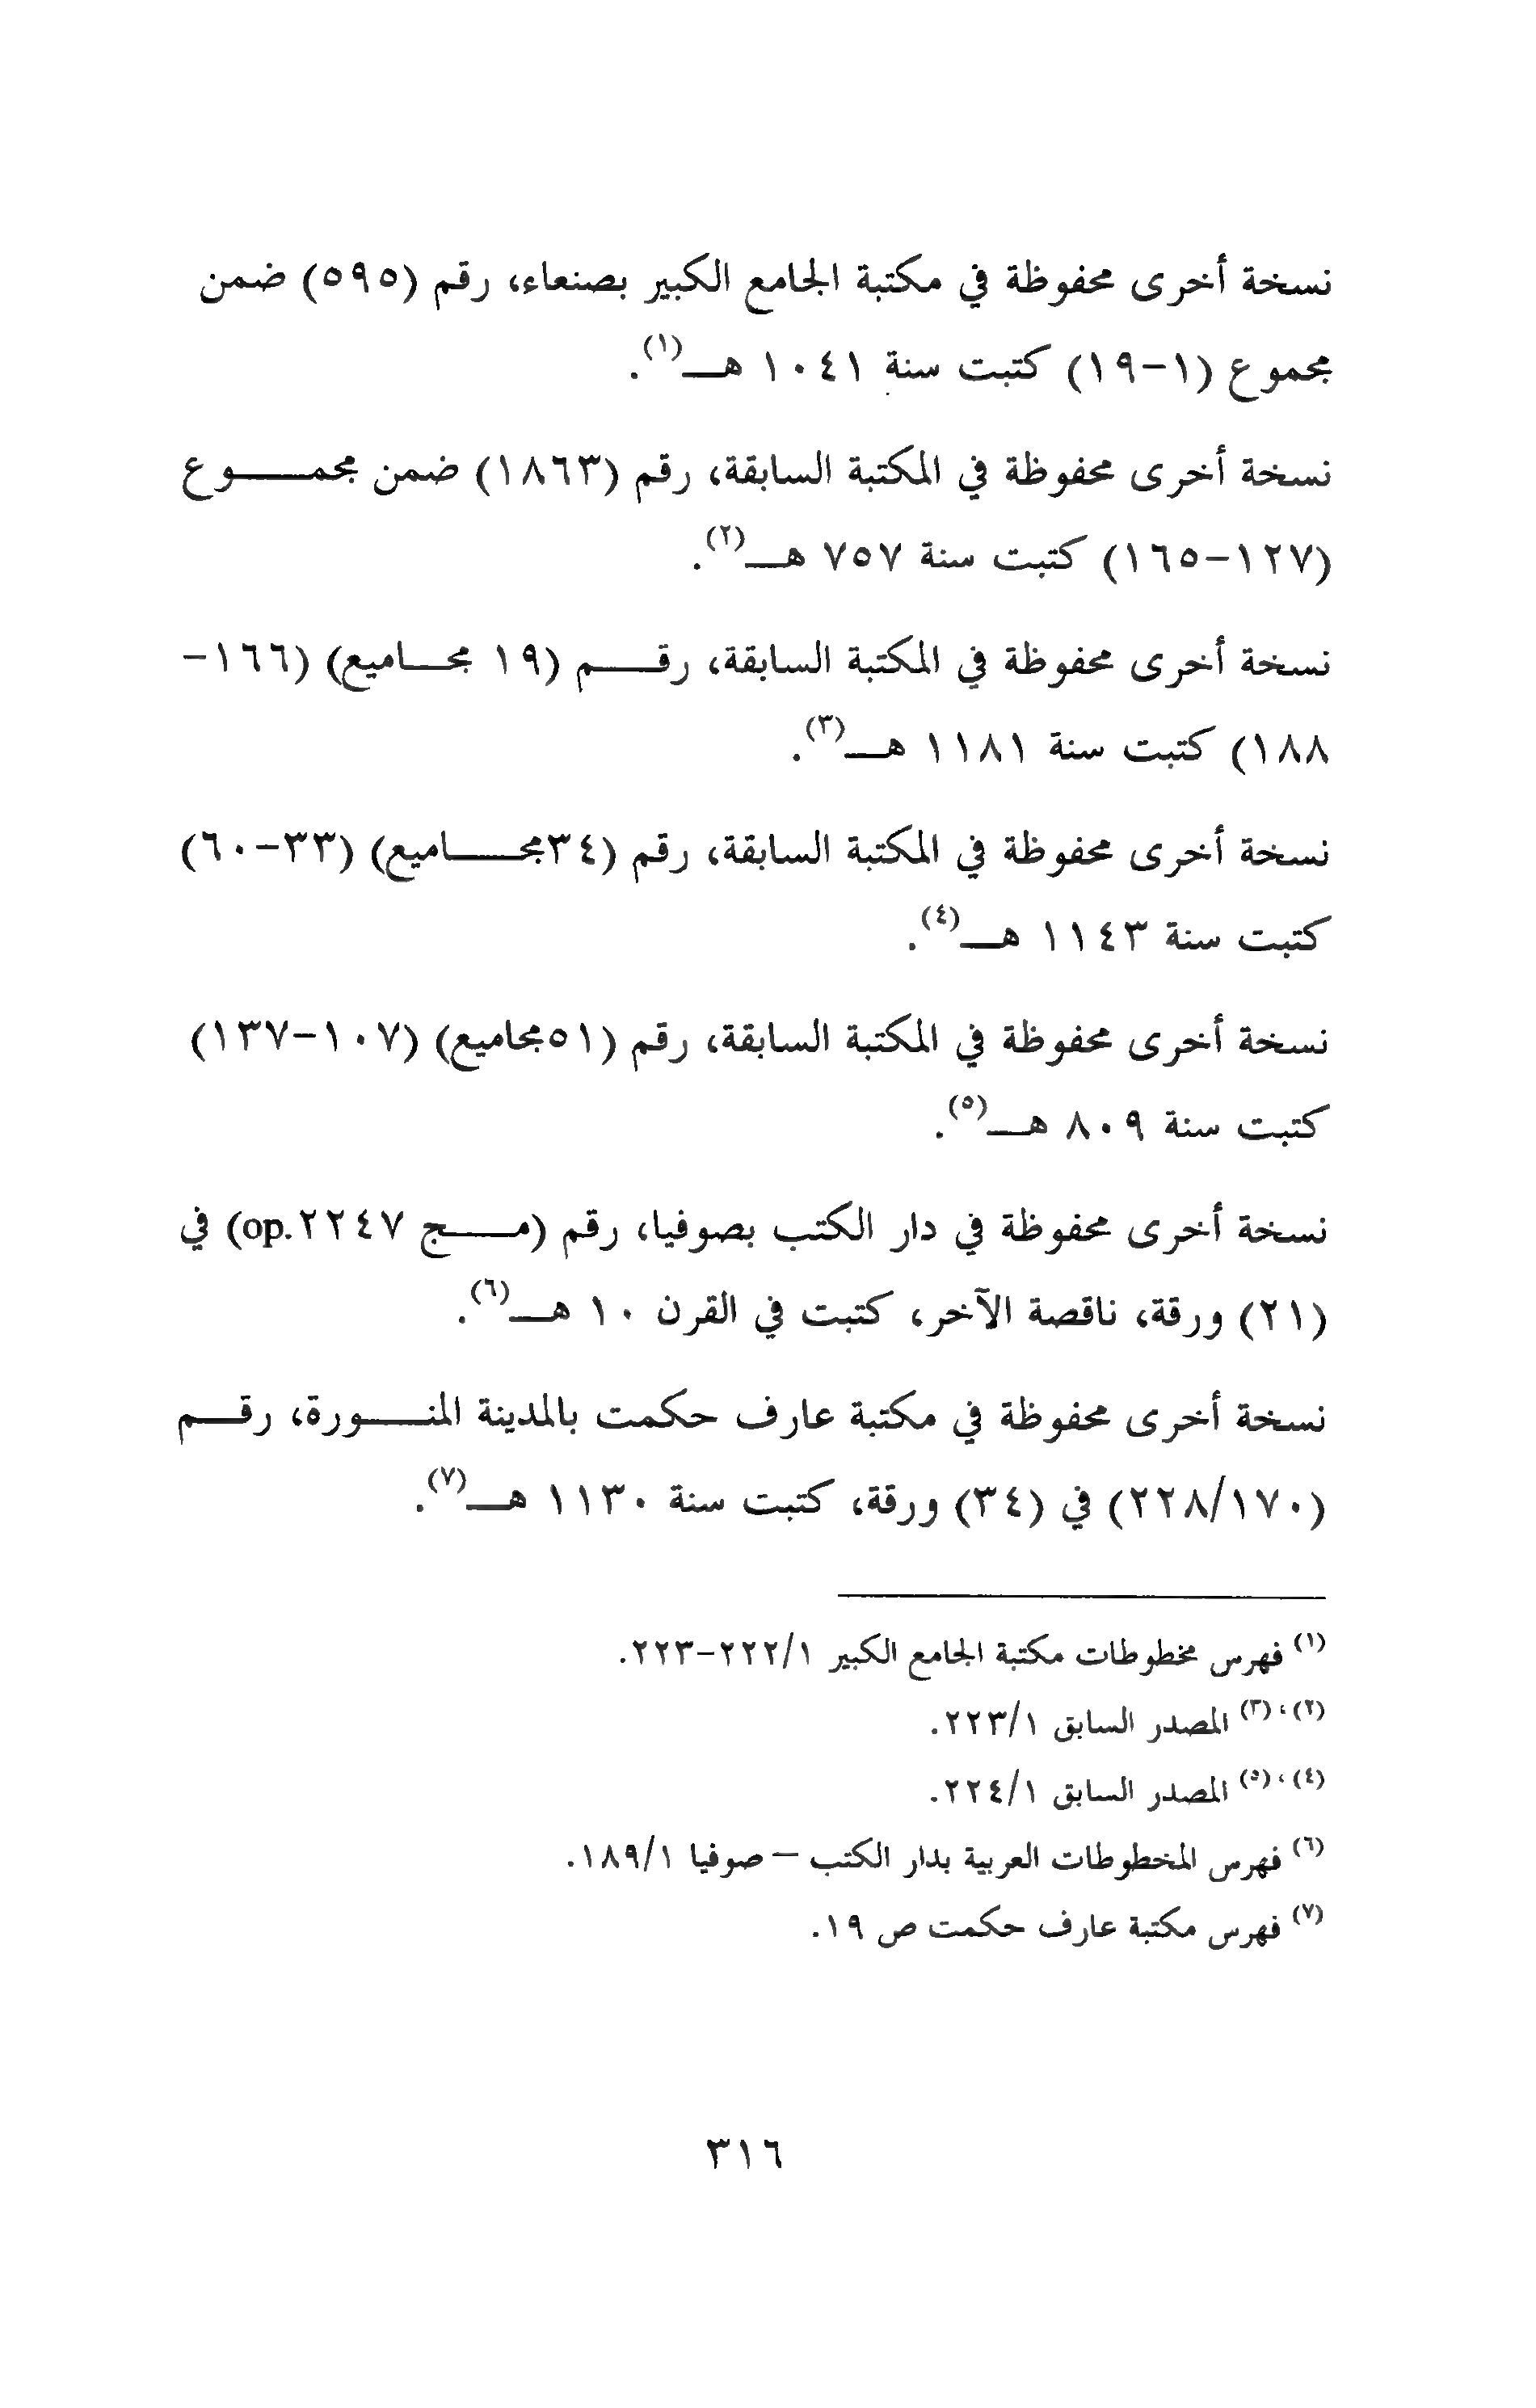 نسخة أخرى محفوظة في مكتبة الجامع الكبير بصنعاء، رقم (٥٩٥) ضمن
مجموع (١-١٩) كتبت سنة ١٠٤١ هـ(١).
نسخة أخرى محفوظة في المكتبة السابقة، رقم (١٨٦٣) ضمن مجمـــوع
(١٢٧-١٦٥) كتبت سنة ٧٥٧ هـ(٢).
نسخة أخرى محفوظة في المكتبة السابقة، رقـــم (١٩ مجـاميع) (١٦٦-
١٨٨) كتبت سنة ١١٨١ هـ(٣).
نسخة أخرى محفوظة في المكتبة السابقة، رقم (٣٤مجـــاميع) (٣٣-٦٠)
كتبت سنة ١١٤٣ هـ(٤).
نسخة أخرى محفوظة في المكتبة السابقة، رقم (٥١مجاميع) (١٠٧-١٣٧)
كتبت سنة ٨٠٩ هـ(٥).
نسخة أخرى محفوظة في دار الكتب بصوفيا، رقم (مـــج ٢٢٤٧.op) في
(٢١) ورقة، ناقصة الآخر، كتبت في القرن ١٠ هـ(٦).
نسخة أخرى محفوظة في مكتبة عارف حكمت بالمدينة المنـــورة، رقـــم
(٢٢٨/١٧٠) في (٣٤) ورقة، كتبت سنة ١١٣٠ هـ(٧).
(١) فهرس مخطوطات مكتبة الجامع الكبير ٢٢٢/١-٢٢٣.
(٢)،(٣) المصدر السابق ٢٢٣/١.
(٤)،(٥) المصدر السابق ٢٢٤/١.
(٦) فهرس المخطوطات العربية بدار الكتب – صوفيا ١٨٩/١.
(٧) فهرس مكتبة عارف حكمت ص ١٩.
٣١٦